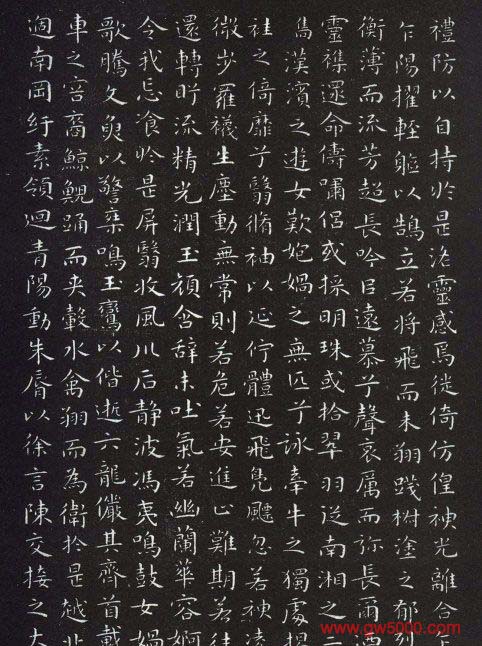 禮防以自持於是洛靈感焉徙倚仿偟神光離合乍
乍陽擢輕軀以鵠立若將飛而未翔踐椒塗之郁烈
衡薄而流芳超長吟以遠慕兮聲哀厲而彌長爾迺
靈雜遝命儔嘯侶或採明珠或拾翠羽從南湘之二
雋漢濱之遊女歎匏媧之無匹兮詠牽牛之獨處揚
袿之倚靡兮翳脩袖以延佇體迅飛鳧飄忽若神淩
微步羅襪生塵動無常則若危若安進止難期若往
還轉眄流精光潤玉顏含辭未吐氣若幽蘭華容婀
令我忘飡於是屏翳收風川后靜波馮夷鳴鼓女媧
歌騰文魚以警乘鳴玉鸞以偕逝六龍儼其齊首載
車之容裔鯨鯢踊而夾轂水禽翔而為衛於是越北
過南岡紆素領迴青陽動朱脣以徐言陳交接之大
www.gw5000.com